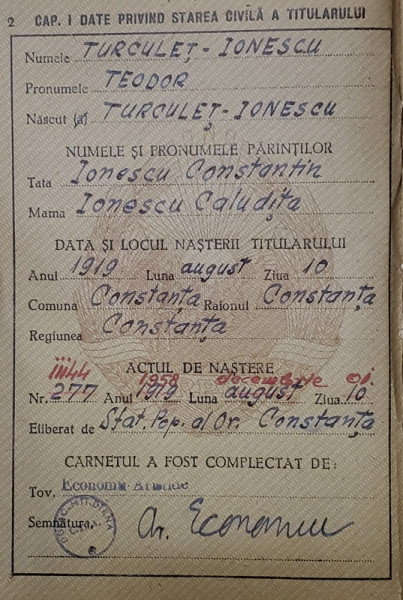 2 CAP. I DATE PRIVIND STAREA CIVILĂ A TITULARULUI
Numele TURCULEȚ - IONESCU
Pronumele TEODOR
Născut (ă) TURCULEȚ - IONESCU
NUMELE ȘI PRONUMELE PĂRINȚILOR
Tata Ionescu Constantin
Mama Ionescu Caludița
DATA ȘI LOCUL NAȘTERII TITULARULUI
Anul 1919 Luna august Ziua 10
Comuna Constanța Raionul Constanța
Regiunea Constanța
ACTUL DE NAȘTERE
1958 decembrie
Nr. 277 Anul 1919 Luna august Ziua 10
Eliberat de Sfat. Pop. al Or. Constanța
CARNETUL A FOST COMPLECTAT DE:
Tov. Economu Aristide
Semnătura, Ar. Economu